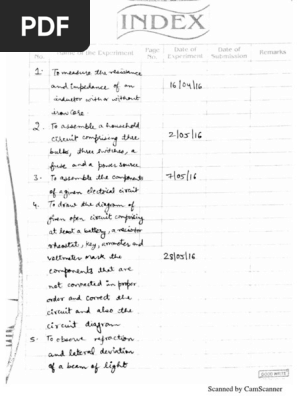 PDF
INDEX
No.
Name of the Experiment
Page No.
Date of Experiment
Date of Submission
Remarks
1. To measure the resistance
and impedance of an
inductor with or without
iron core.
16/04/16
2. To assemble a household
circuit comprising three
bulbs, three switches, a
fuse and a power source
2/05/16
3. To assemble the components
of a given electrical circuit
7/05/16
4. To draw the diagram of
given open circuit comprising
at least a battery, a resistor
rheostat, key, ammeter and
voltmeter mark the
28/05/16
components that are
not connected in proper
order and correct the
circuit and also the
circuit diagram
5. To observe refraction
and lateral deviation
of a beam of light
Scanned by CamScanner